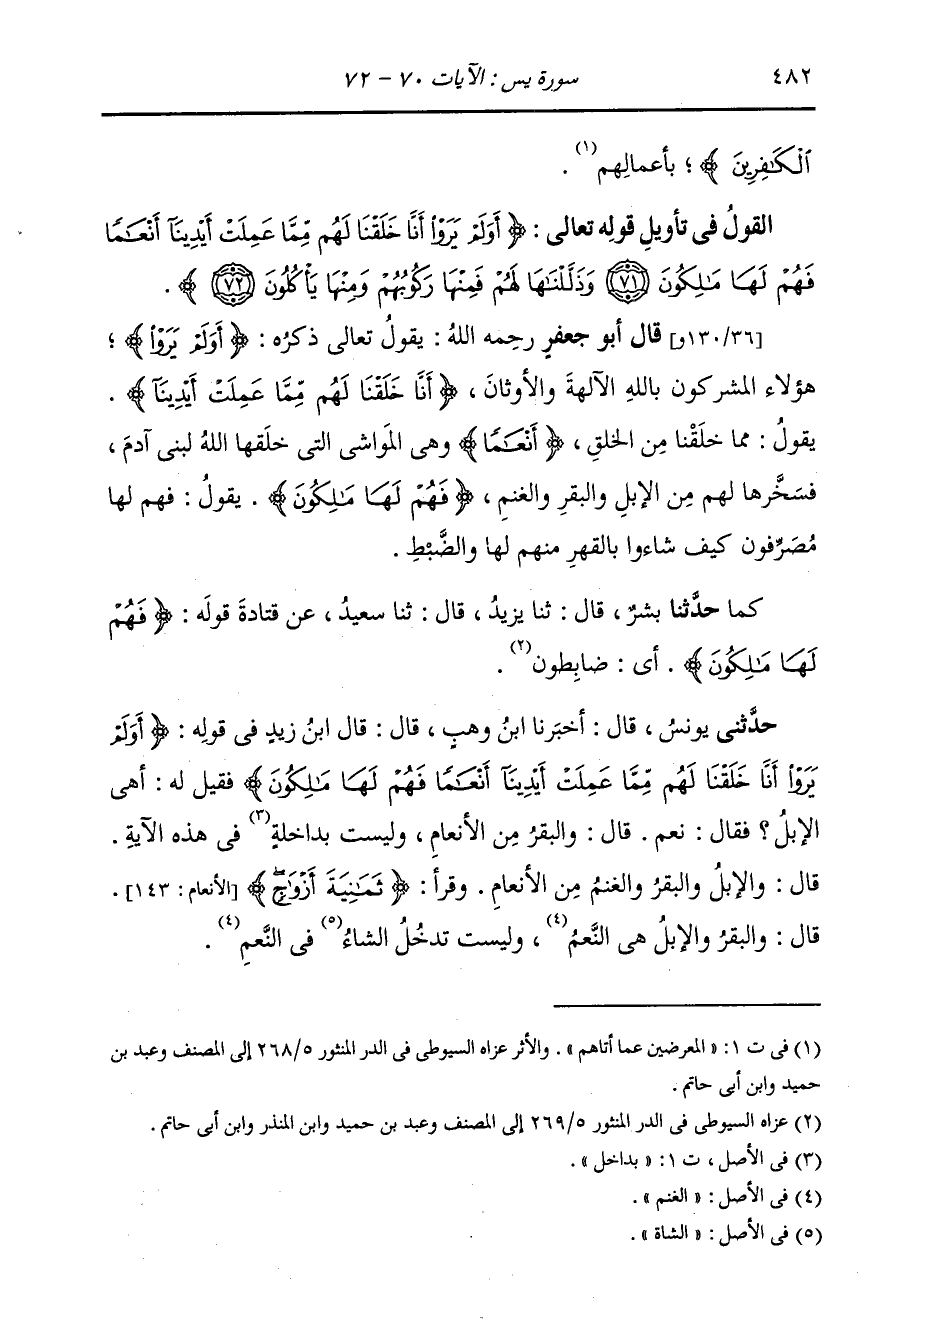 ٤٨٢ سورة يس : الآيات ٧٠ - ٧٢
ٱلْكَٰفِرِينَ ﴾ ؛ بأعمالِهم(١) .
القولُ فى تأويلِ قولِه تعالى : ﴿ أَوَلَمْ يَرَوْا۟ أَنَّا خَلَقْنَا لَهُم مِّمَّا عَمِلَتْ أَيْدِينَآ أَنْعَٰمًا
فَهُمْ لَهَا مَٰلِكُونَ ۝٧١ وَذَلَّلْنَٰهَا لَهُمْ فَمِنْهَا رَكُوبُهُمْ وَمِنْهَا يَأْكُلُونَ ۝٧٢ ﴾ .
[١٣٠/٣٦و] قال أبو جعفرٍ رحِمه اللهُ : يقولُ تعالى ذكرُه : ﴿ أَوَلَمْ يَرَوْا۟ ﴾ ؛
هؤلاء المشركون باللهِ الآلهةَ والأوثانَ ، ﴿ أَنَّا خَلَقْنَا لَهُم مِّمَّا عَمِلَتْ أَيْدِينَآ ﴾ .
يقولُ : مما خلَقْنا مِن الخلقِ ، ﴿ أَنْعَٰمًا ﴾ وهى المَواشى التى خلَقها اللهُ لبنى آدمَ ،
فسَخَّرها لهم مِن الإبلِ والبقرِ والغنمِ ، ﴿ فَهُمْ لَهَا مَٰلِكُونَ ﴾ . يقولُ : فهم لها
مُصَرِّفون كيف شاءوا بالقهرِ منهم لها والضَّبْطِ .
كما حدَّثنا بشرٌ ، قال : ثنا يزيدُ ، قال : ثنا سعيدُ ، عن قتادةَ قولَه : ﴿ فَهُمْ
لَهَا مَٰلِكُونَ ﴾ . أى : ضابِطون(٢) .
حدَّثنى يونسُ ، قال : أخبَرنا ابنُ وهبٍ ، قال : قال ابنُ زيدٍ فى قولِه : ﴿ أَوَلَمْ
يَرَوْا۟ أَنَّا خَلَقْنَا لَهُم مِّمَّا عَمِلَتْ أَيْدِينَآ أَنْعَٰمًا فَهُمْ لَهَا مَٰلِكُونَ ﴾ فقيل له : أهى
الإبلُ ؟ فقال : نعم . قال : والبقرُ مِن الأنعامِ ، وليست بداخلةٍ(٣) فى هذه الآيةِ .
قال : والإبلُ والبقرُ والغنمُ مِن الأنعامِ . وقرأ : ﴿ ثَمَٰنِيَةَ أَزْوَٰجٍ ﴾ [الأنعام : ١٤٣] .
قال : والبقرُ والإبلُ هى النَّعمُ(٤) ، وليست تدخُلُ الشاءُ(٥) فى النَّعمِ(٤) .
(١) فى ت ١ : « المعرضين عما أتاهم » . والأثر عزاه السيوطى فى الدر المنثور ٢٦٨/٥ إلى المصنف وعبد بن
حميد وابن أبى حاتم .
(٢) عزاه السيوطى فى الدر المنثور ٢٦٩/٥ إلى المصنف وعبد بن حميد وابن المنذر وابن أبى حاتم .
(٣) فى الأصل ، ت ١ : « بداخل » .
(٤) فى الأصل : « الغنم » .
(٥) فى الأصل : « الشاة » .